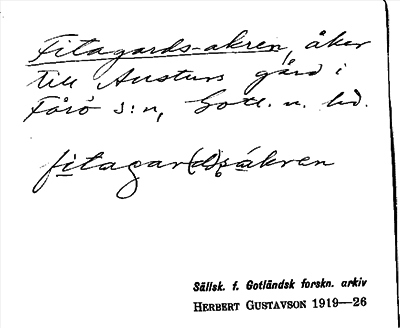 Fitagards-akren, åker
till Austurs gård i
Fårö s:n, Gotl. n. hd.
fitagar(d)sákren
Sällsk. f. Gotländsk forskn. arkiv
HERBERT GUSTAVSON 1919—26